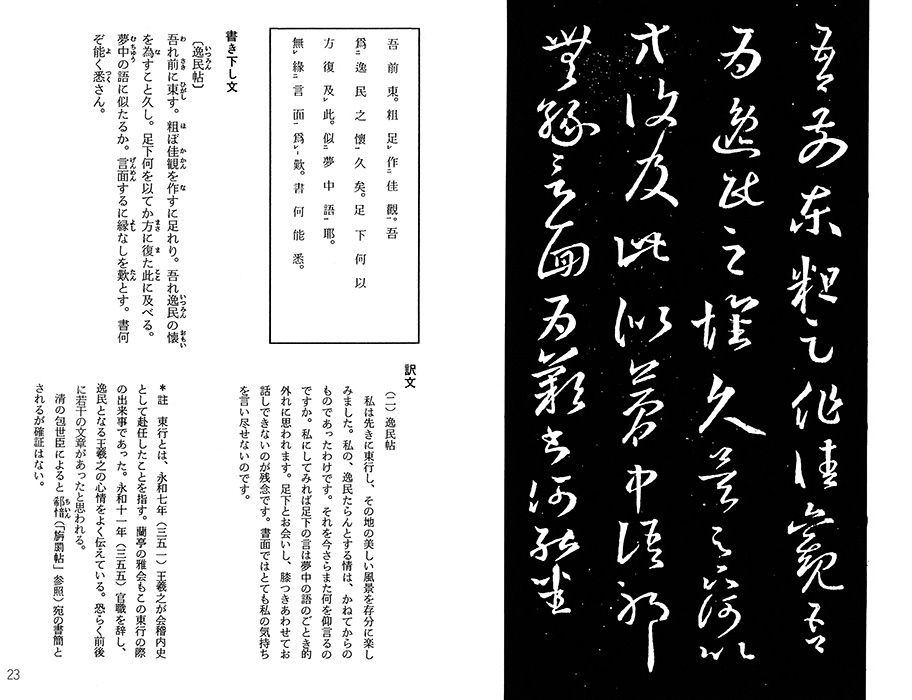 吾前東粗足作佳觀吾
為逸民之懷久矣足下何以
方復及此似夢中語耶
無緣言面為歎書何能悉
吾前東。粗足レ作二佳觀一。吾
爲二逸民之懷一久矣。足下何以
方復及レ此。似二夢中語一耶。
無レ緣二言面一爲レ歎。書何能悉。
書き下し文
〔逸民帖〕
吾れ前に東す。粗ぼ佳観を作すに足れり。吾れ逸民の懐
を為すこと久し。足下何を以てか方に復た此に及べる。
夢中の語に似たるか。言面するに縁なしを歎とす。書何
ぞ能く悉さん。
訳文
（二）逸民帖
私は先きに東行し、その地の美しい風景を存分に楽し
みました。私の、逸民たらんとする情は、かねてからの
ものであったわけです。それを今さらまた何を仰言るの
ですか。私にしてみれば足下の言は夢中の語のごとき的
外れに思われます。足下とお会いし、膝つきあわせてお
話しできないのが残念です。書面ではとても私の気持ち
を言い尽せないのです。
＊註　東行とは、永和七年（三五一）王羲之が会稽内史
として赴任したことを指す。蘭亭の雅会もこの東行の際
の出来事であった。永和十一年（三五五）官職を辞し、
逸民となる王羲之の心情をよく伝えている。恐らく前後
に若干の文章があったと思われる。
清の包世臣によると郗愔（「旃罽帖」参照）宛の書簡と
されるが確証はない。
23